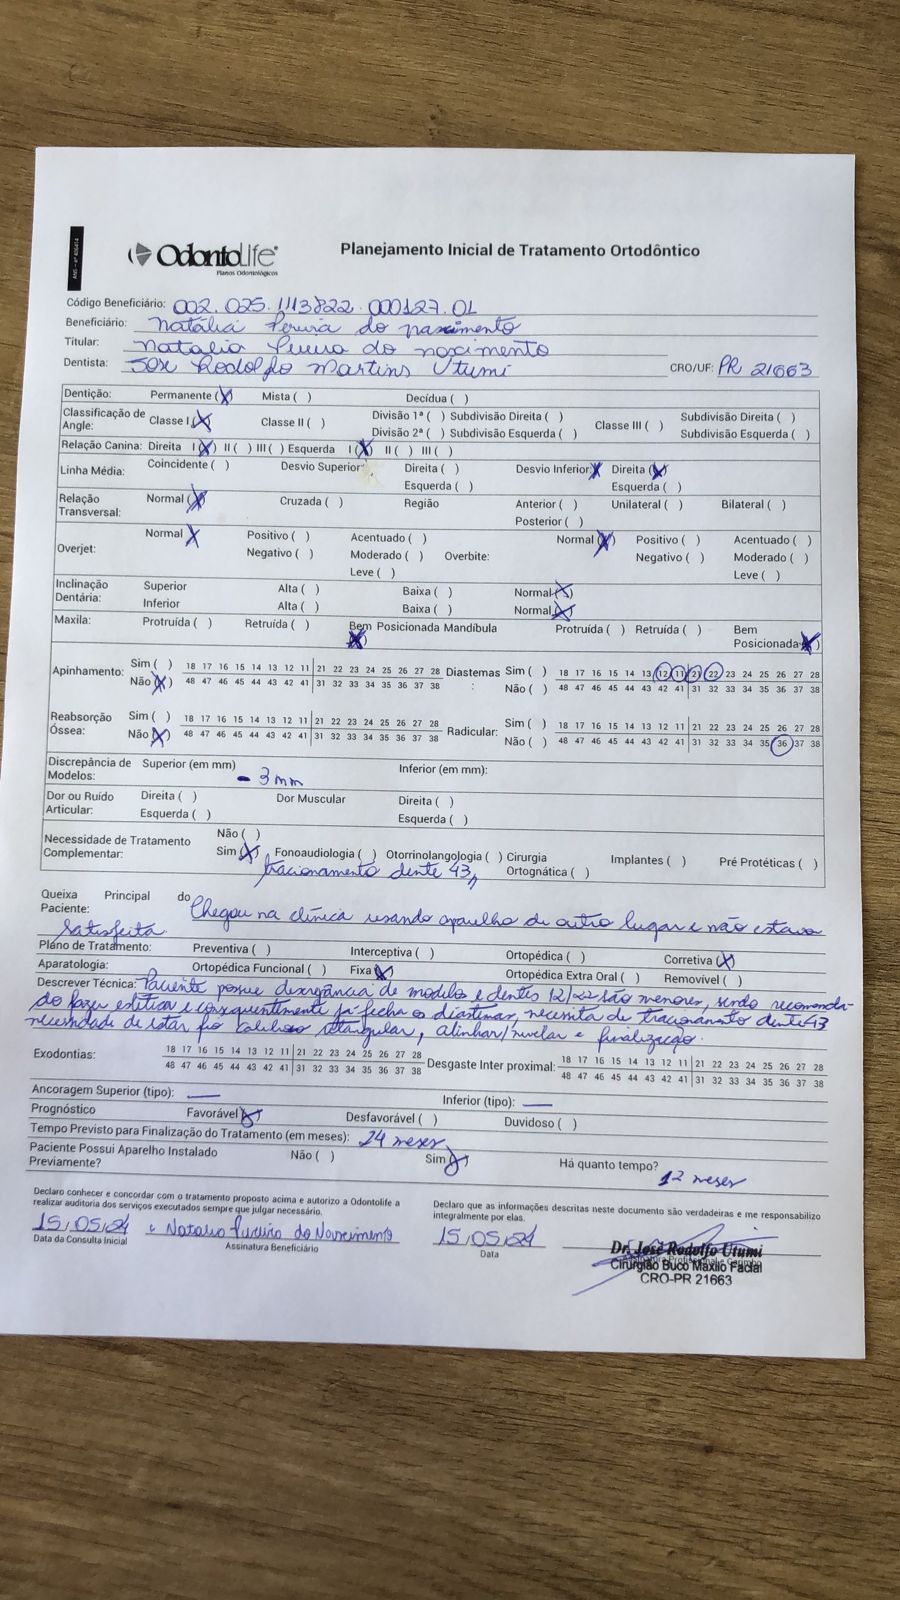 ANS - nº 406414
OdontoLife®
Planos Odontológicos
Planejamento Inicial de Tratamento Ortodôntico
Código Beneficiário: 002.025.1113822.000127.01
Beneficiário: Natália Pereira do nascimento
Titular: Natalia Pereira do nascimento
Dentista: José Rodolfo Martins Utumi CRO/UF: PR 21663
Dentição: Permanente (X) Mista ( ) Decídua ( )
Classificação de Angle: Classe I (X) Classe II ( ) Divisão 1ª ( ) Subdivisão Direita ( ) Classe III ( ) Subdivisão Direita ( )
Divisão 2ª ( ) Subdivisão Esquerda ( ) Subdivisão Esquerda ( )
Relação Canina: Direita I (X) II ( ) III ( ) Esquerda I (X) II ( ) III ( )
Linha Média: Coincidente ( ) Desvio Superior Direita ( ) Desvio Inferior X Direita (X)
Esquerda ( ) Esquerda ( )
Relação Transversal: Normal (X) Cruzada ( ) Região Anterior ( ) Unilateral ( ) Bilateral ( )
Posterior ( )
Overjet: Normal X Positivo ( ) Acentuado ( ) Overbite: Normal (X) Positivo ( ) Acentuado ( )
Negativo ( ) Moderado ( ) Negativo ( ) Moderado ( )
Leve ( ) Leve ( )
Inclinação Dentária: Superior Alta ( ) Baixa ( ) Normal (X)
Inferior Alta ( ) Baixa ( ) Normal (X)
Maxila: Protruída ( ) Retruída ( ) Bem Posicionada (X) Mandíbula Protruída ( ) Retruída ( ) Bem Posicionada (X)
Apinhamento: Sim ( ) 18 17 16 15 14 13 12 11 21 22 23 24 25 26 27 28 Diastemas: Sim ( ) 18 17 16 15 14 13 12 11 21 22 23 24 25 26 27 28
Não (X) 48 47 46 45 44 43 42 41 31 32 33 34 35 36 37 38 Não ( ) 48 47 46 45 44 43 42 41 31 32 33 34 35 36 37 38
Reabsorção Óssea: Sim ( ) 18 17 16 15 14 13 12 11 21 22 23 24 25 26 27 28 Radicular: Sim ( ) 18 17 16 15 14 13 12 11 21 22 23 24 25 26 27 28
Não (X) 48 47 46 45 44 43 42 41 31 32 33 34 35 36 37 38 Não ( ) 48 47 46 45 44 43 42 41 31 32 33 34 35 36 37 38
Discrepância de Modelos: Superior (em mm) - 3 mm Inferior (em mm):
Dor ou Ruído Articular: Direita ( ) Dor Muscular Direita ( )
Esquerda ( ) Esquerda ( )
Necessidade de Tratamento Complementar: Não ( )
Sim (X) Fonoaudiologia ( ) Otorrinolangologia ( ) Cirurgia Ortognática ( ) Implantes ( ) Pré Protéticas ( )
tracionamento dente 43
Queixa Principal do Paciente: Chegou na clínica usando aparelho de outro lugar e não estava
satisfeita
Plano de Tratamento: Preventiva ( ) Interceptiva ( ) Ortopédica ( ) Corretiva (X)
Aparatologia: Ortopédica Funcional ( ) Fixa (X) Ortopédica Extra Oral ( ) Removível ( )
Descrever Técnica: Paciente possue discrepância de modelos e dentes 12/22 são menores, sendo recomenda-
do fazer estética e consequentemente já fecha os diastemas, necessita de tracionamento dente 43
necessidade de estar fio retangular, alinhar/nivelar e finalização.
Exodontias: 18 17 16 15 14 13 12 11 21 22 23 24 25 26 27 28 Desgaste Inter proximal: 18 17 16 15 14 13 12 11 21 22 23 24 25 26 27 28
48 47 46 45 44 43 42 41 31 32 33 34 35 36 37 38 48 47 46 45 44 43 42 41 31 32 33 34 35 36 37 38
Ancoragem Superior (tipo): — Inferior (tipo): —
Prognóstico Favorável (X) Desfavorável ( ) Duvidoso ( )
Tempo Previsto para Finalização do Tratamento (em meses): 24 meses
Paciente Possui Aparelho Instalado Previamente? Não ( ) Sim (X) Há quanto tempo? 12 meses
Declaro conhecer e concordar com o tratamento proposto acima e autorizo a Odontolife a
realizar auditoria dos serviços executados sempre que julgar necessário.
Declaro que as informações descritas neste documento são verdadeiras e me responsabilizo
integralmente por elas.
15/05/24 Natalia Pereira do Nascimento 15/05/24
Data da Consulta Inicial Assinatura Beneficiário Data
Dr. José Rodolfo Utumi
Cirurgião Buco Maxilo Facial
CRO-PR 21663